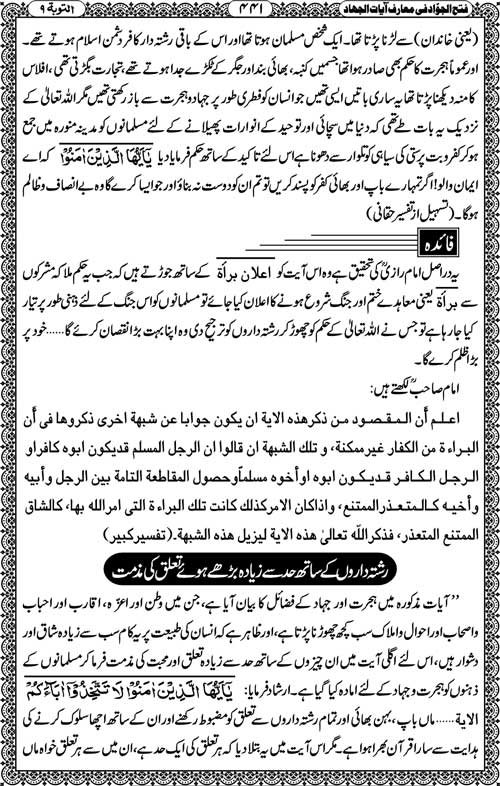 فتح الجوّاد فی معارف آیات الجہاد ۴۴۱ التوبة ۹
(یعنی خاندان) سے لڑنا پڑتا تھا۔ ایک شخص مسلمان ہوتا تھا اور اس کے باقی رشتہ دار کافر دشمن اسلام ہوتے تھے۔
اور عموماً ہجرت کا حکم بھی صادر ہوا تھا جسمیں کنبہ، بھائی بند اور جگر کے ٹکڑے جدا ہوتے تھے، تجارت بگڑتی تھی، افلاس
کا منہ دیکھنا پڑتا تھا یہ ساری باتیں ایسی تھیں جو انسان کو فطری طور پر جہاد و ہجرت سے باز رکھتی تھیں مگر اللہ تعالیٰ کے
نزدیک یہ بات طے تھی کہ دنیا میں سچائی اور توحید کے انوارات پھیلانے کے لئے مسلمانوں کو مدینہ منورہ میں جمع
ہو کر کفر و بت پرستی کی سیاہی کو تلوار سے دھونا ہے اس لئے تاکید کے ساتھ حکم فرمایا دیا یٰۤاَیُّهَا الَّذِیْنَ اٰمَنُوْا کہ اے
ایمان والو! اگر تمہارے باپ اور بھائی کفر کو پسند کریں تو تم ان کو دوست نہ بناؤ اور جو ایسا کرے گا وہ بے انصاف و ظالم
ہوگا۔ (تسہیل از تفسیر حقانی)
فائدہ
یہ دراصل امام رازیؒ کی تحقیق ہے وہ اس آیت کو اعلان برأة کے ساتھ جوڑتے ہیں کہ جب یہ حکم ملا کہ مشرکوں
سے برأة یعنی معاہدے ختم اور جنگ شروع ہونے کا اعلان کیا جائے تو مسلمانوں کو اس جنگ کے لئے ذہنی طور پر تیار
کیا جا رہا ہے تو جس نے اللہ تعالیٰ کے حکم کو چھوڑ کر رشتہ داروں کو ترجیح دی وہ اپنا بہت بڑا نقصان کرے گا...... خود پر
بڑا ظلم کرے گا۔
امام صاحبؒ لکھتے ہیں:
اعلم أن المقصود من ذکر هذه الاية ان یکون جوابا عن شبهة اخری ذکروها فی أن
البراءة من الکفار غیر ممکنة، و تلك الشبهة ان قالوا ان الرجل المسلم قدیکون ابوه کافرا و
الرجل الکافر قدیکون ابوه اوأخوه مسلماً وحصول المقاطعة التامة بین الرجل وأبیه
وأخیه کالمتعذر الممتنع، واذاکان الامرکذلك کانت تلك البراءة التی امرالله بها، کالشاق
الممتنع المتعذر، فذکرالله تعالیٰ هذه الاية لیزیل هذه الشبهة۔ (تفسیرکبیر)
رشتہ داروں کے ساتھ حد سے زیادہ بڑھے ہوئے تعلق کی مذمت
”آیات مذکورہ میں ہجرت اور جہاد کے فضائل کا بیان آیا ہے، جن میں وطن اور اعزّہ، اقارب اور احباب
و اصحاب اور اموال و املاک سب کچھ چھوڑنا پڑتا ہے، اور ظاہر ہے کہ انسان کی طبیعت پر یہ کام سب سے زیادہ شاق اور
دشوار ہیں، اس لئے اگلی آیت میں ان چیزوں کے ساتھ حد سے زیادہ تعلق اور محبت کی مذمت فرما کر مسلمانوں کے
ذہنوں کو ہجرت و جہاد کے لئے امادہ کیا گیا ہے۔ ارشاد فرمایا: یٰۤاَیُّهَا الَّذِیْنَ اٰمَنُوْا لَا تَتَّخِذُوْۤا اٰبَآءَكُمْ
الایة...... ماں باپ، بہن بھائی اور تمام رشتہ داروں سے تعلق کو مضبوط رکھنے اور ان کے ساتھ اچھا سلوک کرنے کی
ہدایت سے سارا قرآن بھرا ہوا ہے۔ مگر اس آیت میں یہ بتلا دیا کہ ہر تعلق کی ایک حد ہے، ان میں سے ہر تعلق خواہ ماں